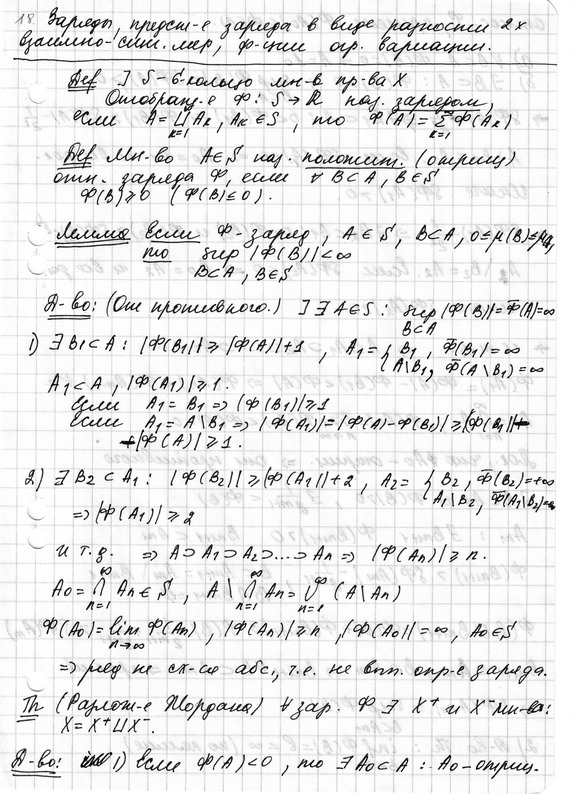 18 Заряды, предст-е заряда в виде разности 2х
взаимно-синг. мер, ф-ции огр. вариации.
Def ] S - σ-кольцо мн-в пр-ва X
Отображ-е Ф: S → R наз. зарядом,
если A = ⊔_{k=1}^{∞} A_k, A_k ∈ S, то Ф(A) = Σ_{k=1}^{∞} Ф(A_k)
Def Мн-во A∈S наз. положит. (отриц)
отн. заряда Ф, если ∀ B⊂A, B∈S
Ф(B) ≥ 0 (Ф(B) ≤ 0).
Лемма если Ф-заряд, A∈S, B⊂A, 0≤μ(B)≤
то sup_{B⊂A, B∈S} |Ф(B)| < ∞
Д-во: (От противного.) ] ∃ A∈S: sup_{B⊂A} |Ф(B)| = Ф̄(A) = ∞
1) ∃ B₁⊂A: |Ф(B₁)| ≥ |Ф(A)|+1, A₁ = { B₁, Ф̄(B₁) = ∞
A\B₁, Ф̄(A\B₁) = ∞
A₁⊂A, |Ф(A₁)| ≥ 1.
Если A₁ = B₁ ⇒ |Ф(B₁)| ≥ 1
если A₁ = A\B₁ ⇒ |Ф(A₁)| = |Ф(A) - Ф(B₁)| ≥ |Ф(B₁)| -
- |Ф(A)| ≥ 1.
2) ∃ B₂⊂A₁: |Ф(B₂)| ≥ |Ф(A₁)|+2, A₂ = { B₂, Ф̄(B₂) = +∞
A₁\B₂, Ф̄(A₁\B₂) = ∞
⇒ |Ф(A₁)| ≥ 2
и т.д. ⇒ A⊃A₁⊃A₂⊃...⊃A_n ⇒ |Ф(A_n)| ≥ n.
A₀ = ∩_{n=1}^{∞} A_n ∈ S, A \ ∩_{n=1}^{∞} A_n = ∪_{n=1}^{∞} (A\A_n)
Ф(A₀) = lim_{n→∞} Ф(A_n), |Ф(A_n)| ≥ n, |Ф(A₀)| = ∞, A₀∈S
⇒ ряд не сх-ся абс, т.е. не вып. опр-е заряда.
Th (Разлож-е Жордана) ∀ зар. Ф ∃ X⁺ и X⁻ мн-ва:
X = X⁺ ⊔ X⁻.
Д-во: 1) если Ф(A) < 0, то ∃ A₀⊂A: A₀ - отриц.